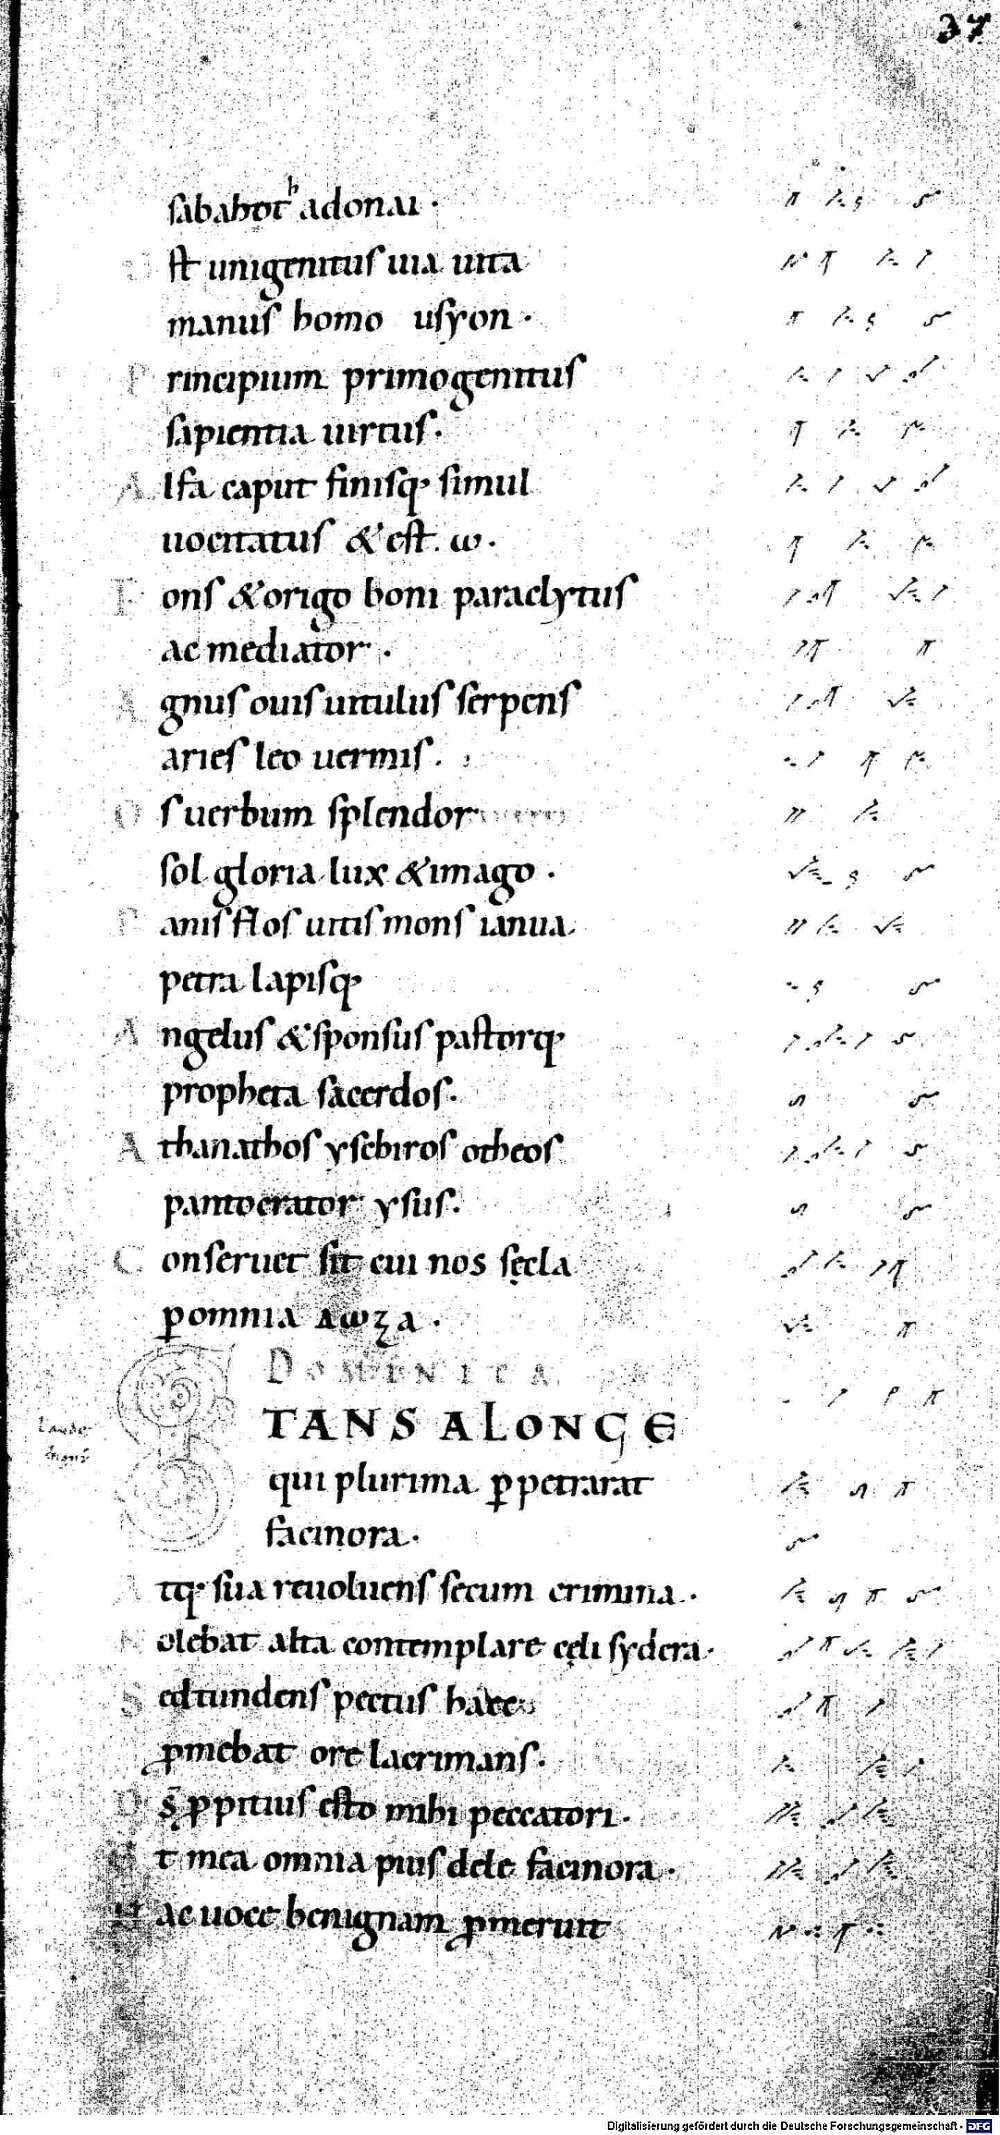 37
sabahot h adonai ·
Est unigenitus uia uita
manus homo usyon ·
Principium primogenitus
sapientia uirtus ·
Alfa caput finisq· simul
uocitatus & est · ω ·
Fons & origo boni paraclytus
ac mediator ·
Agnus ouis uitulus serpens
aries leo uermis ·
Os uerbum splendor
sol gloria lux & imago ·
Panis flos uitis mons ianua
petra lapisq·
Angelus & sponsus pastorq·
propheta sacerdos ·
Athanathos yschiros otheos
pantocrator ysus ·
Conseruet sit cui nos sęcla
ꝑ omnia ΔωΖΑ ·
DOMINICA
STANS A LONGE
qui plurima ꝑpetrarat
facinora ·
Atq· sua reuoluens secum crimina ·
Nolebat alta contemplare cęli sydera ·
Sed tundens pectus haec
ꝓmebat ore lacrimans ·
D̄s ꝓpitius esto mihi peccatori ·
Et mea omnia pius dele facinora ·
Hac uoce benignam ꝓmeruit
Digitalisierung gefördert durch die Deutsche Forschungsgemeinschaft - DFG